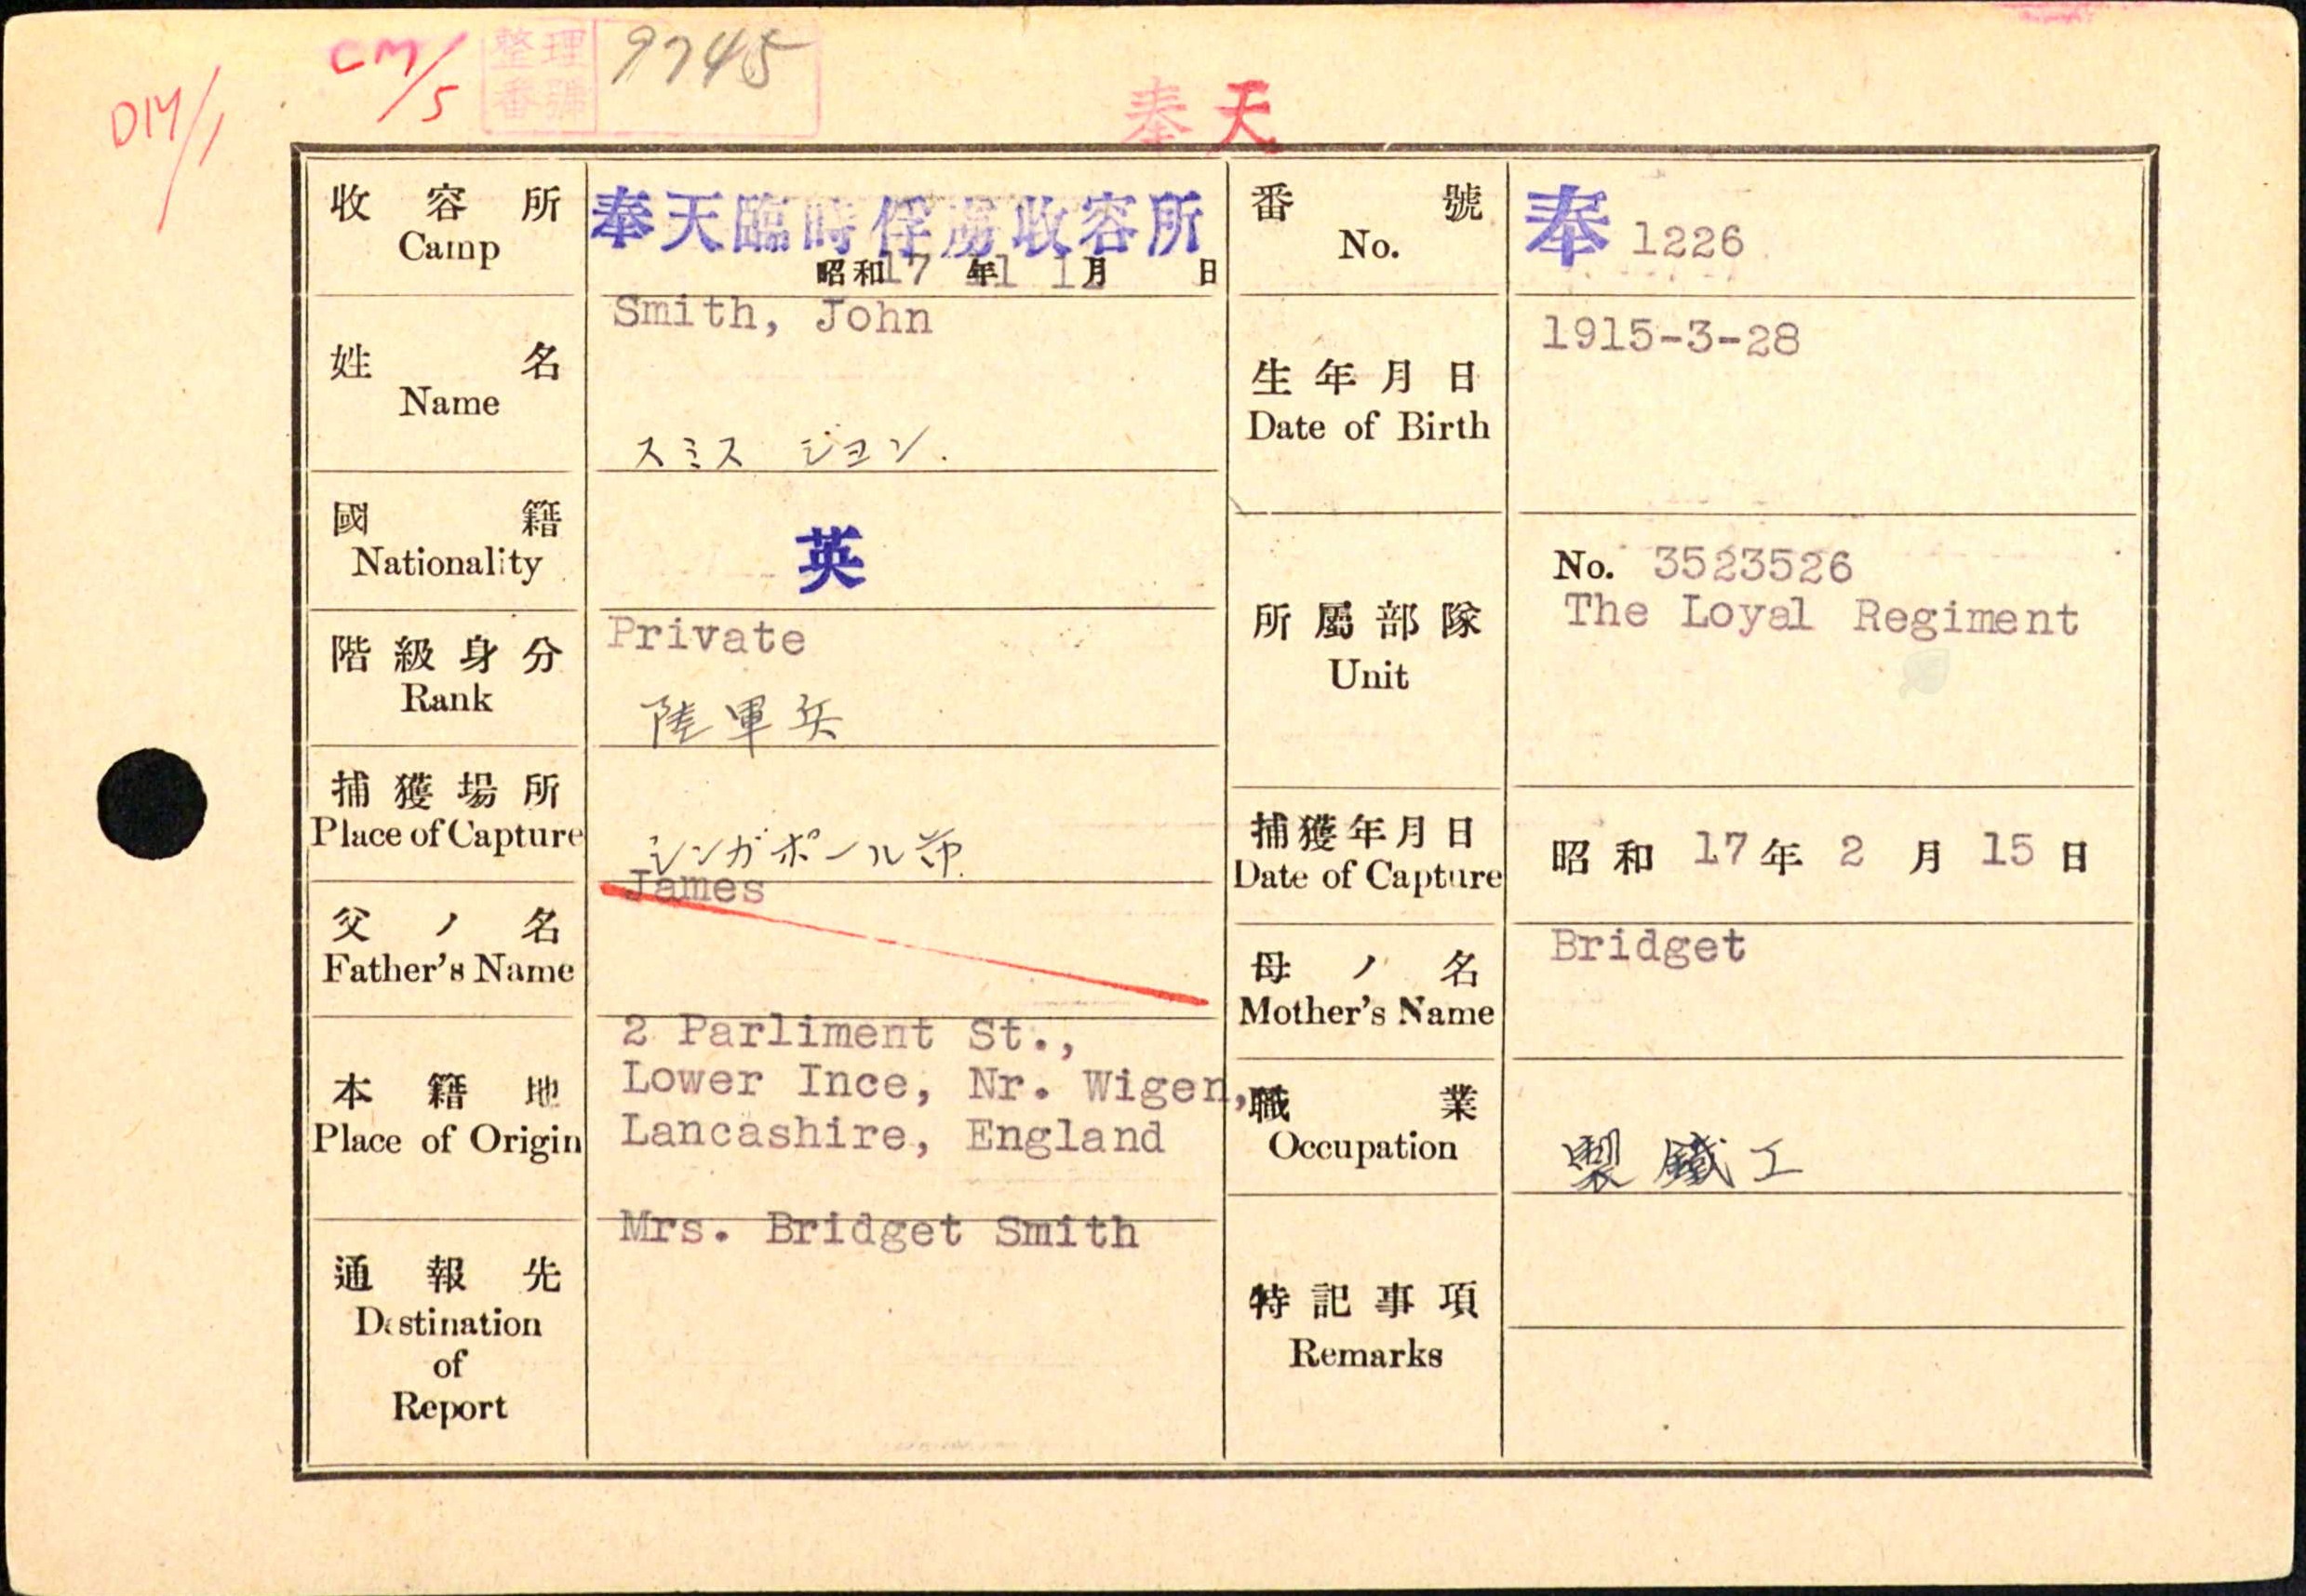 DM/1
CM/5
整理
番號
9745
奉天
收容所
Camp
奉天臨時俘虜收容所
昭和17年11月 日
番號
No.
奉 1226
姓名
Name
Smith, John
スミス ジョン.
生年月日
Date of Birth
1915-3-28
國籍
Nationality
英
階級身分
Rank
Private
陸軍兵
所屬部隊
Unit
No. 3523526
The Loyal Regiment
捕獲場所
Place of Capture
シンガポール市
捕獲年月日
Date of Capture
昭和 17年 2月 15日
父ノ名
Father's Name
James
母ノ名
Mother's Name
Bridget
本籍地
Place of Origin
2 Parliment St.,
Lower Ince, Nr. Wigen,
Lancashire, England
職業
Occupation
製鐵工
通報先
Destination
of
Report
Mrs. Bridget Smith
特記事項
Remarks